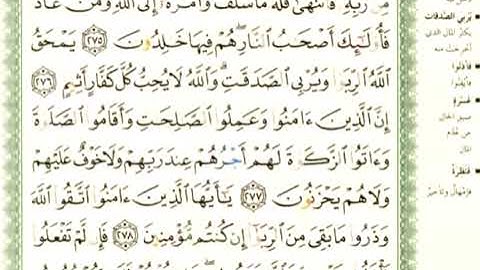 مِّن رَّبِّهِۦ فَٱنتَهَىٰ فَلَهُۥ مَا سَلَفَ وَأَمْرُهُۥٓ إِلَى ٱللَّهِ وَمَنْ عَادَ
فَأُو۟لَٰٓئِكَ أَصْحَٰبُ ٱلنَّارِ هُمْ فِيهَا خَٰلِدُونَ ٢٧٥ يَمْحَقُ
ٱللَّهُ ٱلرِّبَوٰا۟ وَيُرْبِى ٱلصَّدَقَٰتِ وَٱللَّهُ لَا يُحِبُّ كُلَّ كَفَّارٍ أَثِيمٍ ٢٧٦
إِنَّ ٱلَّذِينَ ءَامَنُوا۟ وَعَمِلُوا۟ ٱلصَّٰلِحَٰتِ وَأَقَامُوا۟ ٱلصَّلَوٰةَ
وَءَاتَوُا۟ ٱلزَّكَوٰةَ لَهُمْ أَجْرُهُمْ عِندَ رَبِّهِمْ وَلَا خَوْفٌ عَلَيْهِمْ
وَلَا هُمْ يَحْزَنُونَ ٢٧٧ يَٰٓأَيُّهَا ٱلَّذِينَ ءَامَنُوا۟ ٱتَّقُوا۟ ٱللَّهَ
وَذَرُوا۟ مَا بَقِىَ مِنَ ٱلرِّبَوٰٓا۟ إِن كُنتُم مُّؤْمِنِينَ ٢٧٨ فَإِن لَّمْ تَفْعَلُوا۟
يُرْبِي الصَّدَقَاتِ
يكثر المال الذي
أخرجت منه
فَأْذَنُوا
فأيقنوا
عُسْرَةٍ
ضيق الحال
من عدم
المال
فَنَظِرَةٌ
فإمهال وتأخير